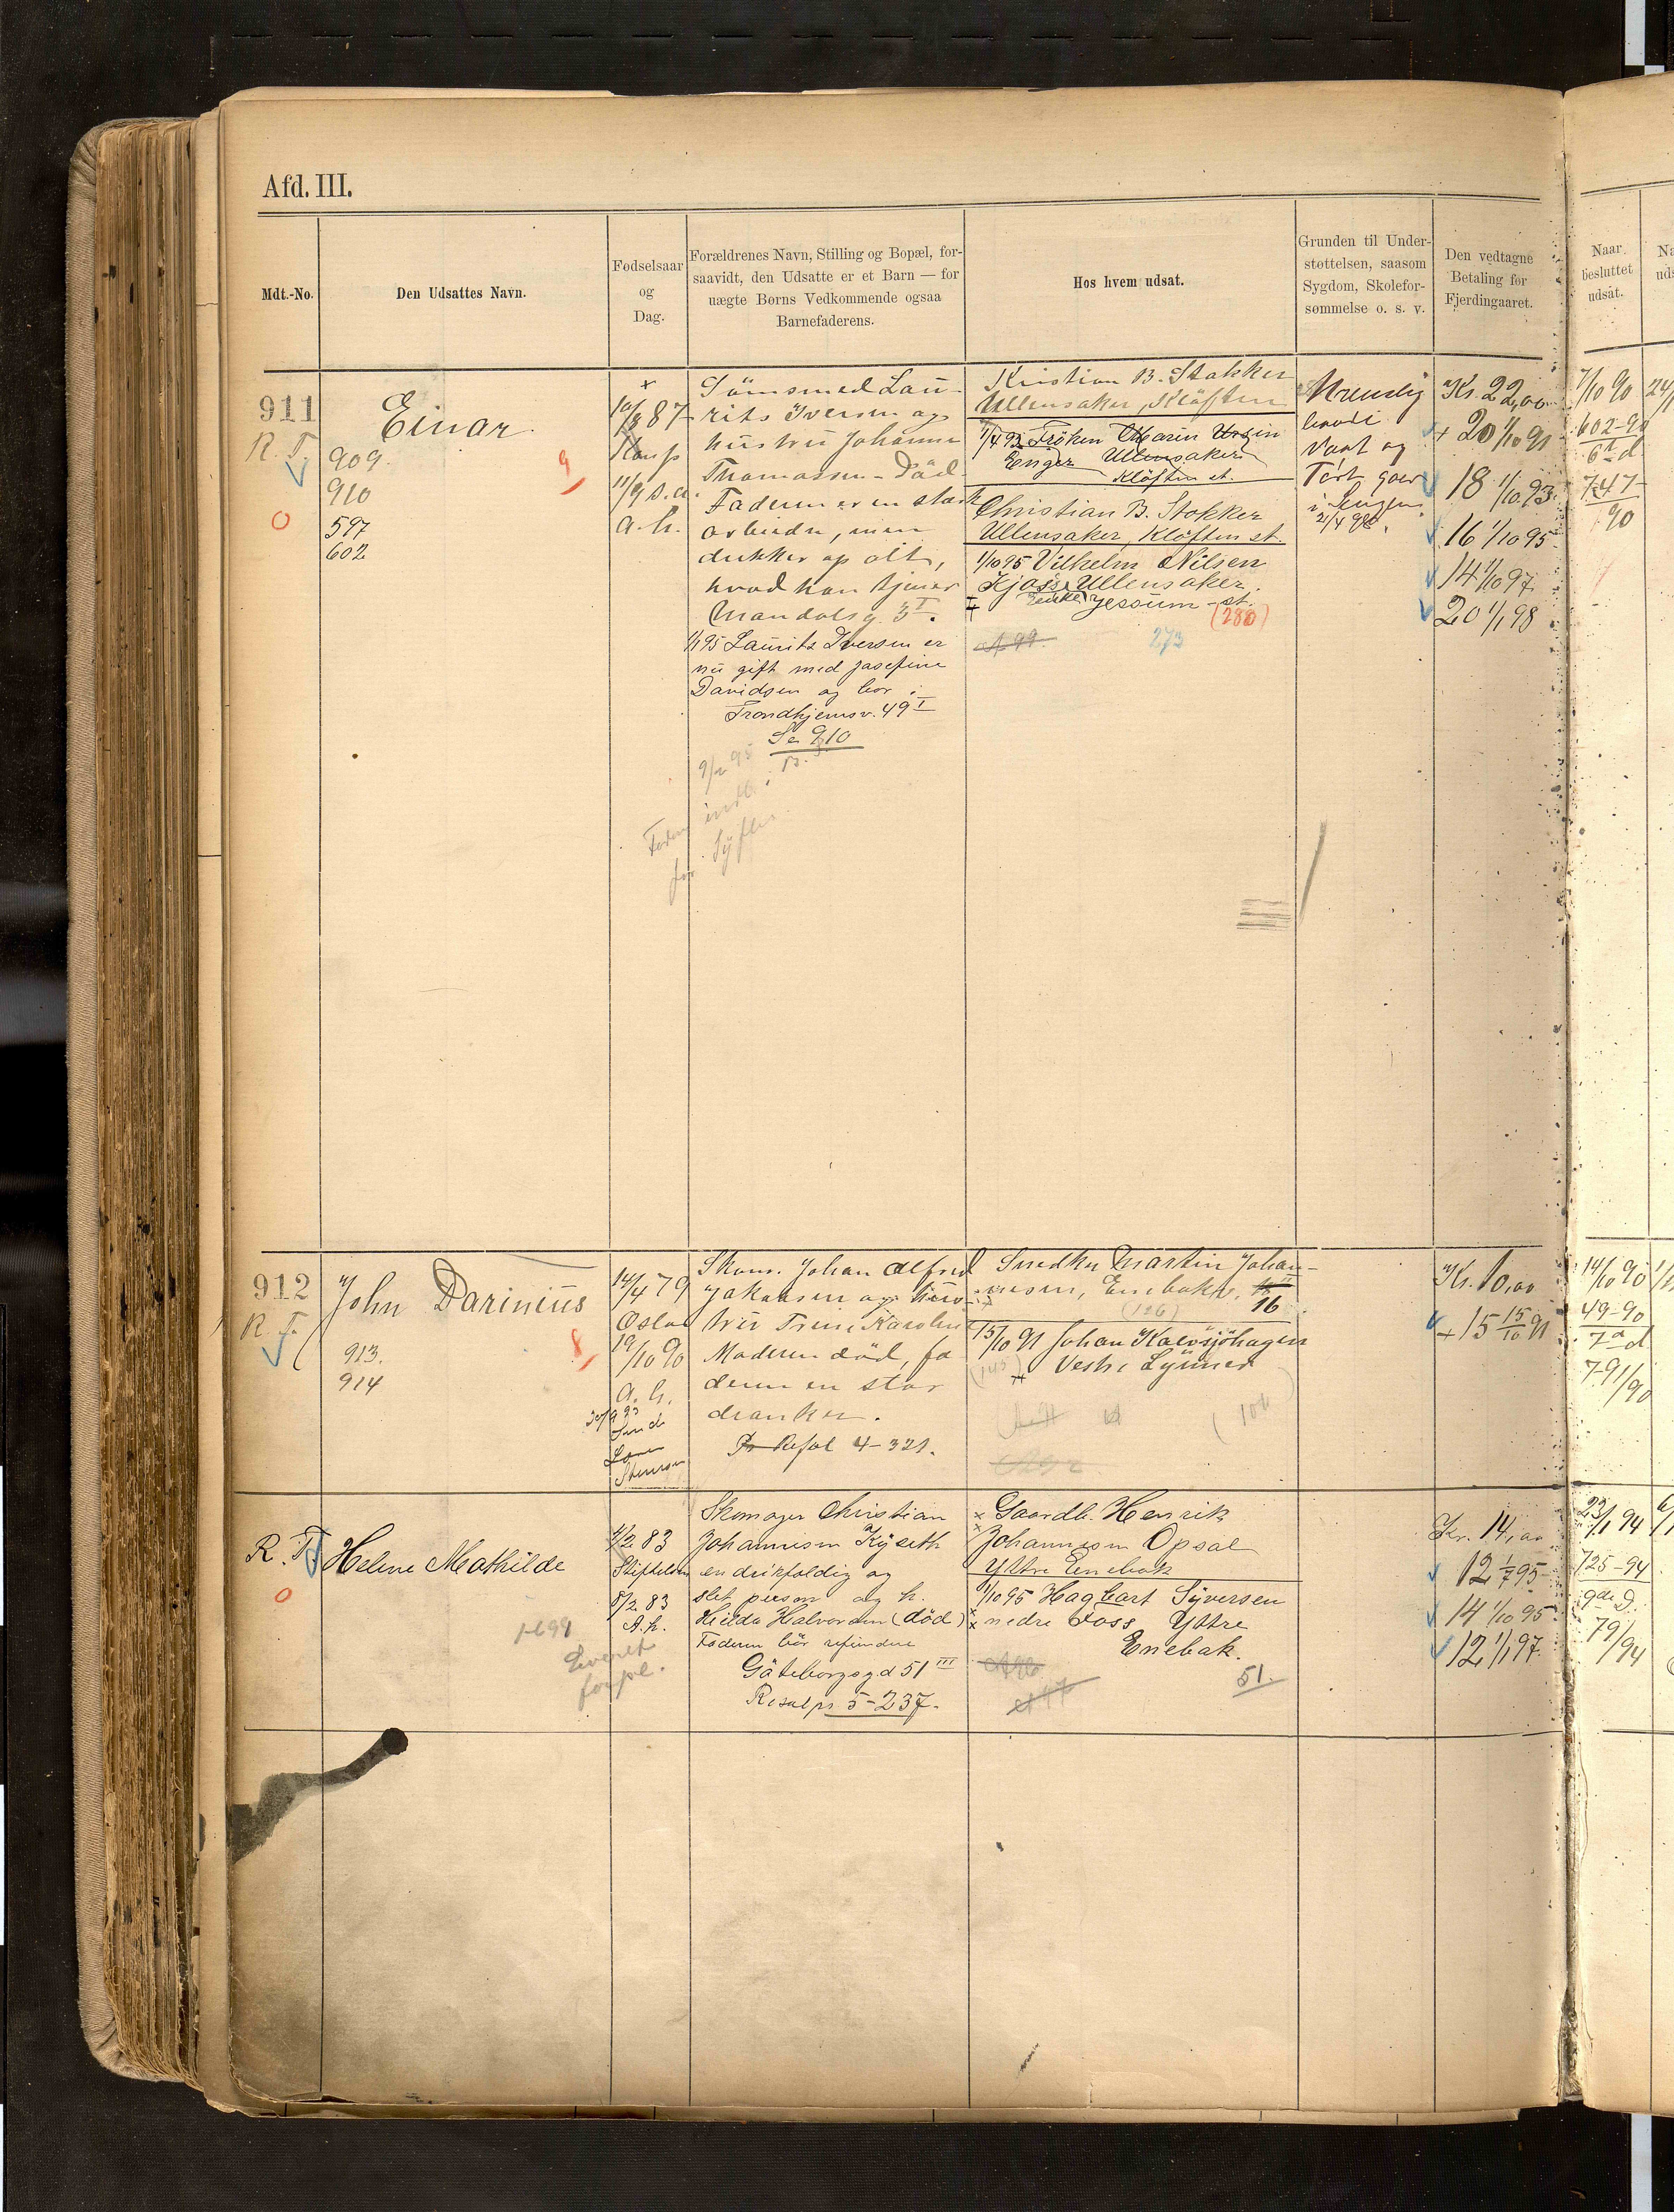 Afd. III.
Mdt.-No.
Den Udsattes Navn.
Fødselsaar
og
Dag.
Forældrenes Navn, Stilling og Bopæl, for-
saavidt, den Udsatte er et Barn — for
uægte Børns Vedkommende ogsaa
Barnefaderens.
Hos hvem udsat.
Grunden til Under-
støttelsen, saasom
Sygdom, Skolefor-
sømmelse o. s. v.
Den vedtagne
Betaling for
Fjerdingaaret.
Naar
besluttet
udsat.
911
R. T.
Einar
909
910
597
602
9
10/8 87
Kamp
11/9 s.a.
a. h.
Sömsmed Lau-
rits Iversen og
hustru Johanne
Thomassen - Död
Faderen er en stærk
arbeider, men
drikker op alt,
hvad han tjener
Mandalsg. 3 I.
1/1 95 Laurits Iversen er
nu gift med Josefine
Davidsen og bor i
Trondhjemsv. 49 I
Se 910
9/2 95
Faderen indl. i
for Syfilis
Kristian B. Stokker
Ullensaker, Klöften
1/4 92 Fröken Maren Ursin
Enger Ullensaker
Klöften st.
Christian B. Stokker
Ullensaker, Klöften st.
1/10 95 Vilhelm Nilsen
Kjos Ullensaker
Jessum - st.
(280)
273
Urenslig
baade
Vaat og
Tört gaar
i Sengen
21/4 98.
Kr. 22,00
+ 20 1/10 91
18 1/10 93
16 1/10 95
14 1/10 97
20 1/1 98
7/10 90
602-90
6te d
747
90
912
R. T.
John Darinius
913.
914
8
14/4 79
Oslo
19/10 90
a. h.
Skom. Johan Alfred
Jakobsen og hus-
tru Trine Karoline
Moderen död, fa
deren en stor
dranker.
Resol 4-321.
Snedker Martin Johan-
nesen, Enebak
16
(126)
15/10 91 Johan Kalvsjöhagen
Vestre Lunner
(145)
(106
Kr. 10,00
+ 15 15/10 91
14/10 90
49-90
7de d
791/90
R. T.
Helene Mathilde
4/2 83
Stiftelsen
8/2 83
A. h.
Skomager Christian
Johannesen Kyseth
en drikfældig og
slet person og h.
Hilda Halvorsen (död)
Faderen bör refundere
Göteborgsgd 51 III
Resol pr 5-237.
× Gaardb. Henrik
Johannesen Opsal
Yttre Enebak
1/10 95 Hagbart Syversen
nedre Foss Yttre
Enebak.
51.
Kr. 14,00
12 1/7 95
14 1/10 95
12 1/1 97
23/1 94
725-94
9de D.
79/94